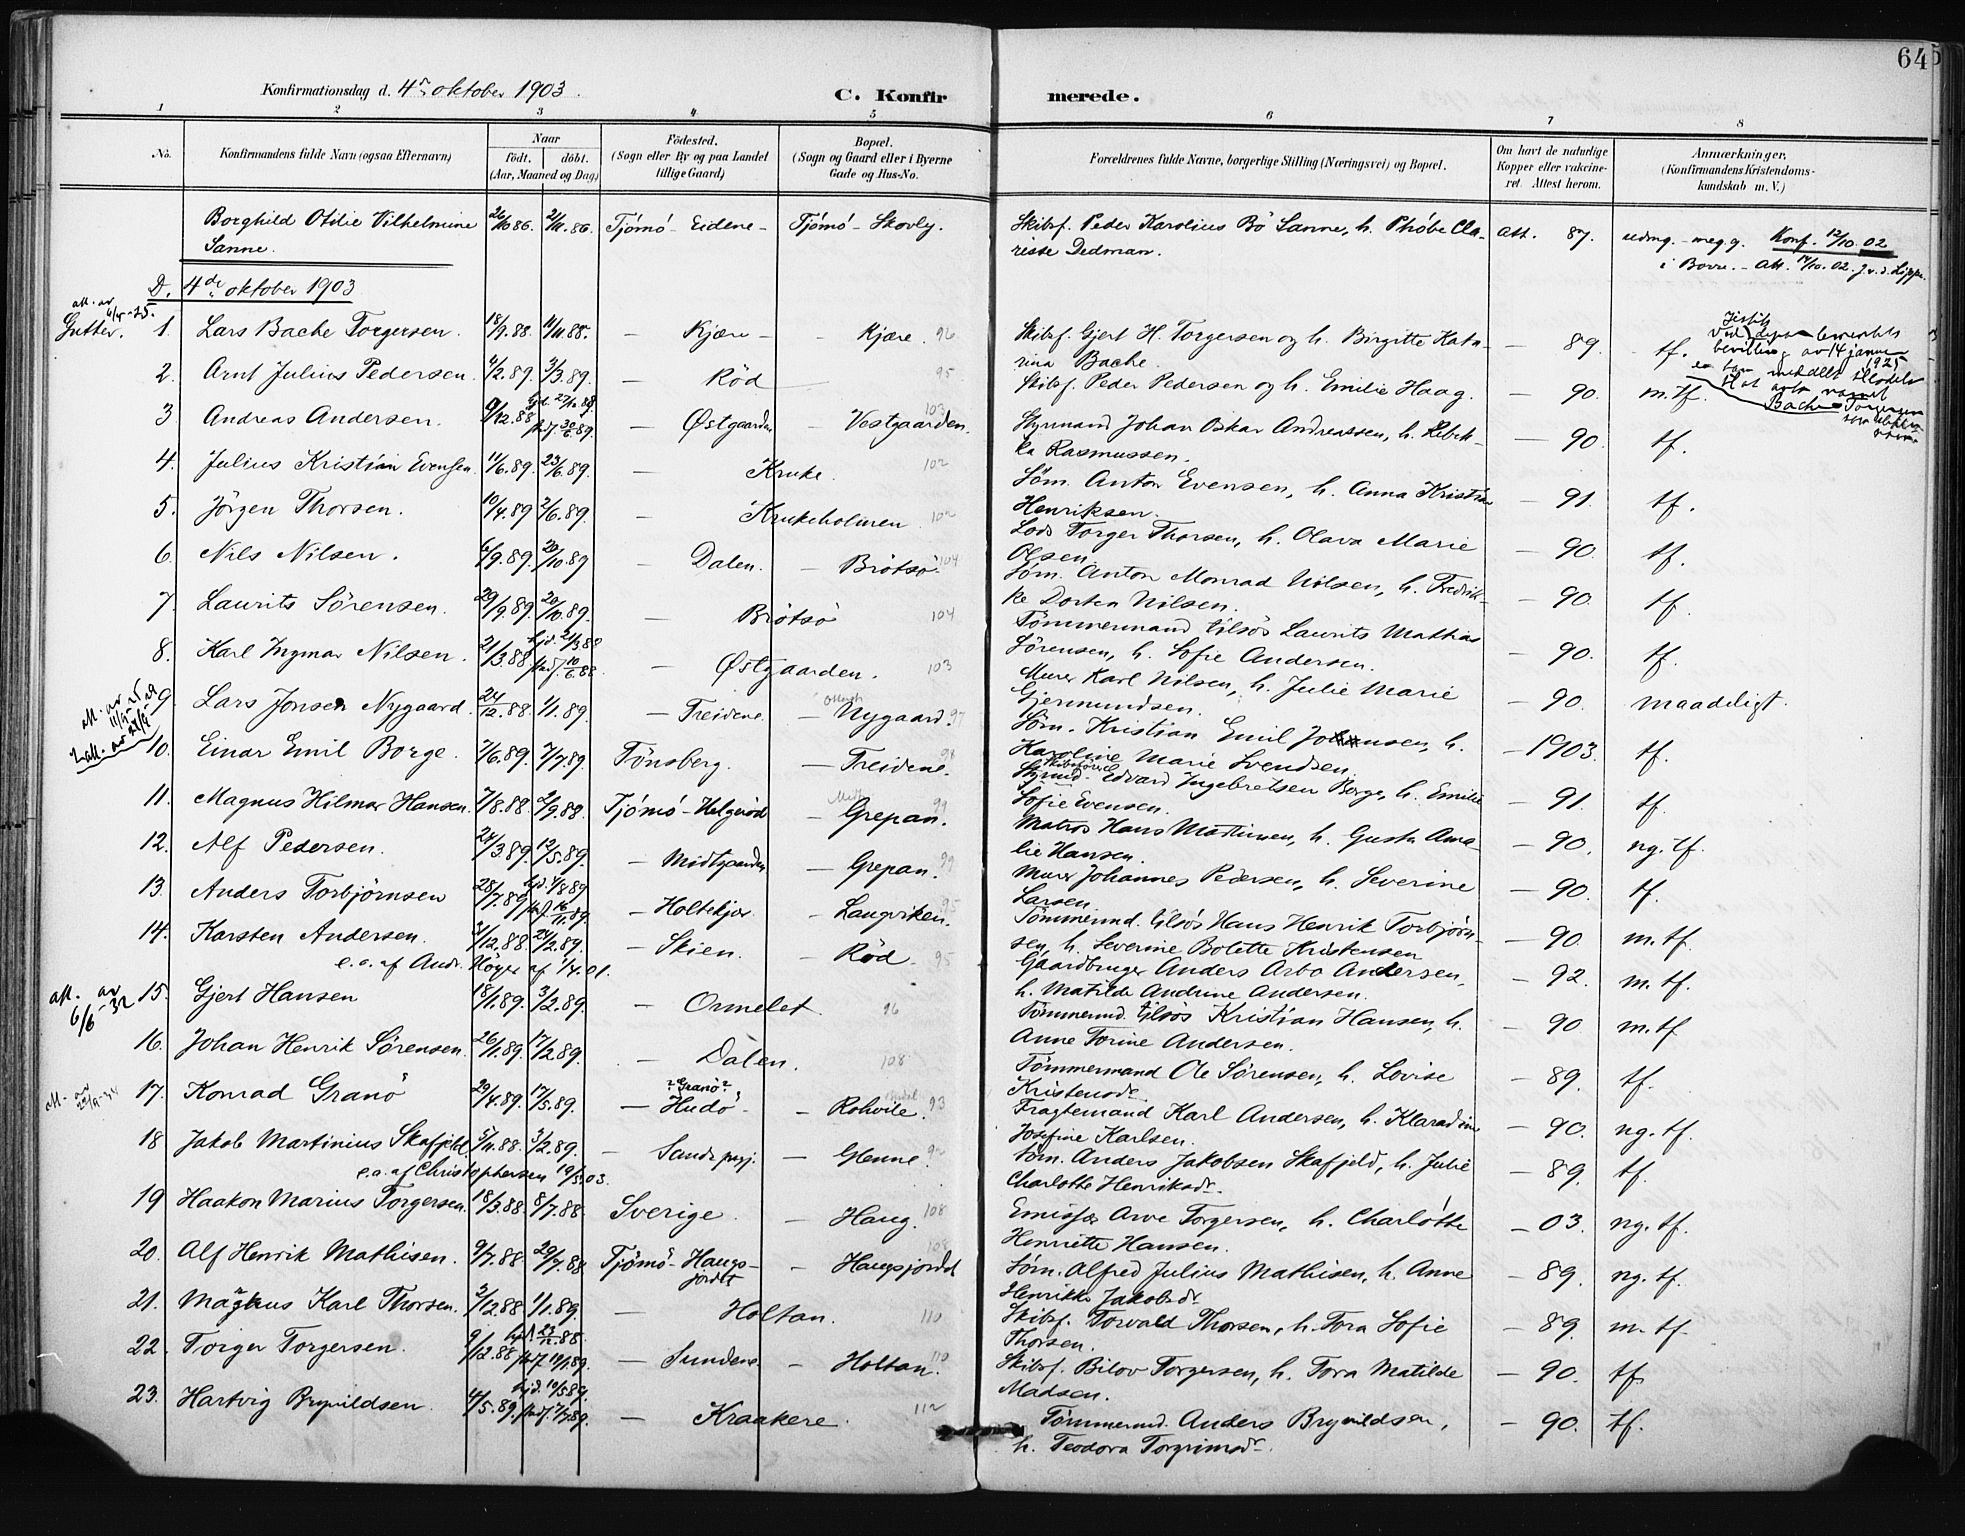 64
Konfirmationsdag d. 4de oktober 1903.
C. Konfirmerede.
1 2 3 4 5 6 7 8
No. Konfirmandens fulde Navn (ogsaa Efternavn) Naar født, (Aar, Maaned og Dag) døbt. Fødested. (Sogn eller By og paa Landet tillige Gaard) Bopæl. (Sogn og Gaard eller i Byerne Gade og Hus-No. Forældrenes fulde Navne, borgerlige Stilling (Næringsvei) og Bopæl. Om havt de naturlige Kopper eller vakcineret. Attest herom. Anmærkninger. (Konfirmandens Kristendomskundskab m. V.)
Borghild Otilie Vilhelmine Sanne. 26/10 86. 2/11. 86. Tjømø - Eidene - Tjømø - Skovly. Skibsf. Peder Karolius Bø Sanne, h. Phøbe Clarisse Dedman. att. 87. udmg. - meg. g. Konf. 12/10. 02 i Borre. - Att. 14/10. 02.
D. 4de oktober 1903
Gutter. 1. Lars Bache Torgersen. 18/9. 88. 11/11. 88. - Kjære - - Kjære. 96 Skibsf. Gjert H. Torgersen og h. Birgitte Katarina Bache. - 89. - tf.
2. Arnt Julius Pedersen. 4/2. 89. 3/3. 89. - Rød 95 Skibsf. Peder Pedersen og h. Emilie Haag. - 90. m. tf.
3 Andreas Andersen. 9/12. 88 - Østgaarden - Vestgaarden. 103 Styrmand Johan Oskar Andreassen, h. Rebekka Rasmussen. - 90. tf.
4. Julius Kristian Evensen 11/6. 89. 23/6. 89. - Kruke. 102 Søm. Anton Evensen, h. Anna Kristine Henriksen. - 91. tf.
5. Jørgen Thorsen. 10/4. 89 2/6. 89. - Krukeholmen. 102 Lods Torger Thorsen, h. Olava Marie Olsen. - 90. tf.
6. Nils Nilsen. 6/9. 89. 20/10. 89 - Dalen. - Brøtsø. 104 Søm. Anton Monrad Nilsen, h. Fredrikke Dortea Nilsen. - 90. tf.
7. Laurits Sørensen. 29/9. 89. 20/10. 89. - Brøtsø 104 Tømmermand tilsøs Laurits Mathias Sørensen, h. Sofie Andersen. - 90. tf.
8. Karl Ingmar Nilsen. 21/3. 88. hjd. 21/3 88 - Østgaarden. 103 Murer Karl Nilsen, h. Julie Marie Gjermundsen. - 90. maadeligt.
9. Lars Jonsen Nygaard. 24/12. 88. 1/1. 89. - Treidene. - Nygaard 97 Søm. Kristian Emil Johnsen, h. Karoline Marie Svendsen. - 1903. tf.
10. Einar Emil Borge. 2/6. 89. 7/7. 89. Tønsberg. - Treidene. 98 Styrmd. Edvard Ingebretsen Borge, h. Emilie Sofie Evensen. - 91. tf.
11. Magnus Hilmar Hansen. 7/8. 88. 2/9. 88. Tjømø - Helgerød - Grepan. 99 Matros Hans Martinsen, h. Gusta Amalie Hansen. - 90. ng. tf.
12. Alf Pedersen. 24/3. 89. 12/5. 89. - Midtgaarden - Grepan. 99 Murer Johannes Pedersen, h. Severine Larsen. - 90. tf.
13. Anders Torbjørnsen 28/7. 89 hjd. 4/8 89 - Holtekjær. - Langviken. 95 Tømmermd. tilsøs Hans Henrik Torbjørnsen, h. Severine Bolette Kristensen - 90. m. tf.
14. Karsten Andersen. 3/12. 88. 24/2. 89. - Skien. - Rød. 95 Gaardbruger Anders Arbo Andersen, h. Matilde Andrine Andersen. - 92. m. tf.
e. a. af Andr. Høyer af 1/4. 01.
att. av 6/6 - 32 15. Gjert Hansen 18/1. 89. 3/2. 89. - Ormelet. 96 Tømmermd. tilsøs Kristian Hansen, h. Anne Torine Andersen. - 90. m. tf
16. Johan Henrik Sørensen. 26/1. 89. 17/2. 89. - Dalen. 108 Tømmermand Ole Sørensen, h. Lovise Kristensdr. - 89. tf.
17. Konrad Granø 29/4. 89. 17/5. 89. - ? Granø ? Hudø - - Rohvile. 93 Fragtemand Karl Andersen, h. Klaradine Josefine Karlsen. - 90. ng. tf.
18 Jakob Martinius Skafjeld. 5/11. 88. 3/2. 89. - Sandspyj. - Glenne. Søm. Anders Jakobsen Skafjeld, h. Julie Charlotte Henriksdr. - 89. tf.
e. a. af Christophersen 19/5. 03.
19 Haakon Marius Torgersen. 18/3. 88. 8/7. 88 Sverige. - Haug. 108 Emissær Arve Torgersen, h. Charlotte Henriette Hansen. - 03. ng. tf.
20. Alf Henrik Mathisen. 9/7. 88 29/7. 88 Tjømø - Haugsjordet - Haugsjordet 108 Søm. Alfred Julius Mathisen, h. Anne Henrikke Jakobsdr - 89. ng. tf.
21. Magnus Karl Thorsen. 2/12. 88. 1/1. 89. - Holtan. 110 Skibsf. Torvald Thorsen, h. Tora Sofie Thorsen. - 89. m. tf.
22. Torger Torgersen. 9/12. 88 hjd. 23/12. 88. - Sundene - Holtan. 110 Skibsf. Bilov Torgersen, h. Tora Matilde Madsen. - 90. tf
23. Hartvig Brynildsen. 4/5. 89. hjd. 10/5 89. - Kraakere. 112 Tømmermd. Anders Brynildsen, h. Teodora Torgrimsdr. - 90. tf.